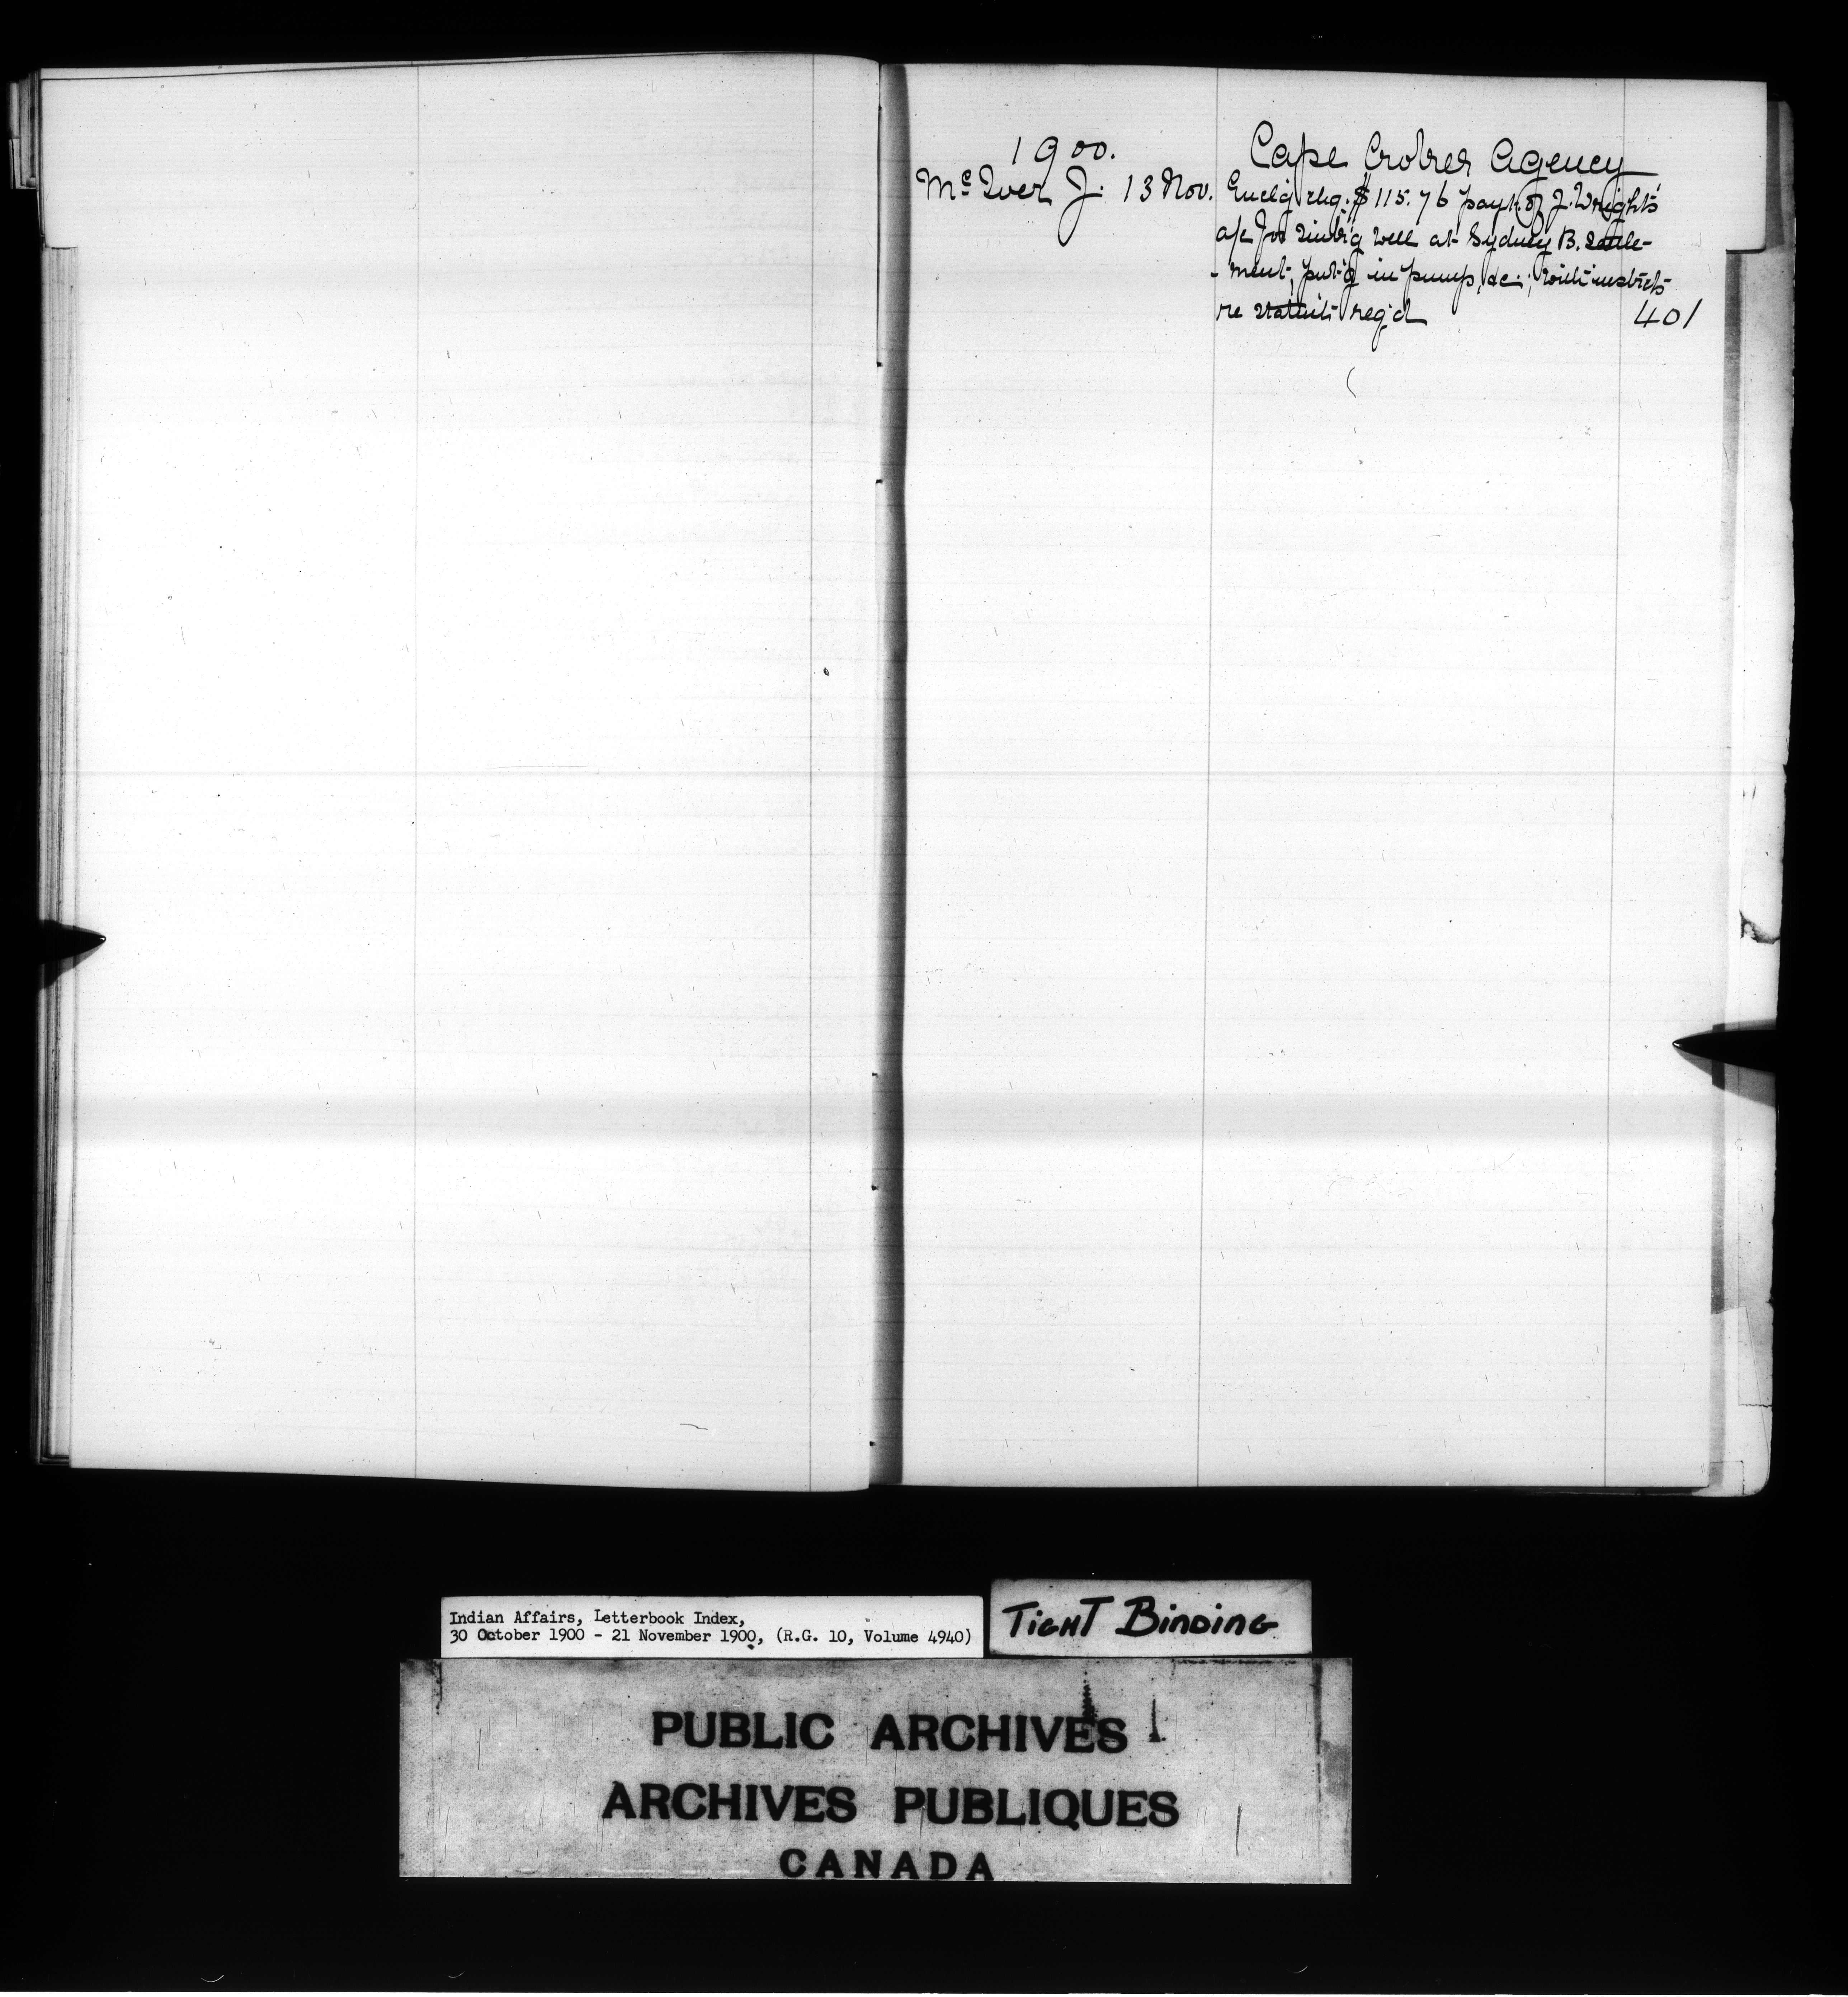 1900.
Cape Croker Agency
McIver J. 13 Nov. Enclg chq. $115.76 payt. of J. Wright's
a/c for sink'g well at Sydney B. settle-
-ment, put'g in pump, &c; with instrcts
re statm't req'd 401
Indian Affairs, Letterbook Index,
30 October 1900 - 21 November 1900, (R.G. 10, Volume 4940)
TIGHT BINDING
PUBLIC ARCHIVES
ARCHIVES PUBLIQUES
CANADA